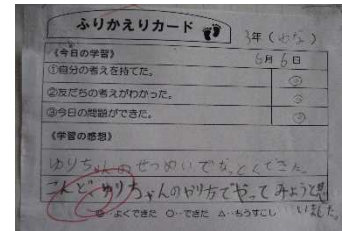 ふりかえりカード
3年(わな)
《今日の学習》
6月6日
①自分の考えを持てた。 ◎
②友だちの考えがわかった。 ◎
③今日の問題ができた。 ◎
《学習の感想》
ゆりちゃんのせつめいでなっとくできた。
こんど、ゆりちゃんのやり方でやってみようと思
いました。
◎…よくできた ○…できた △…もうすこし